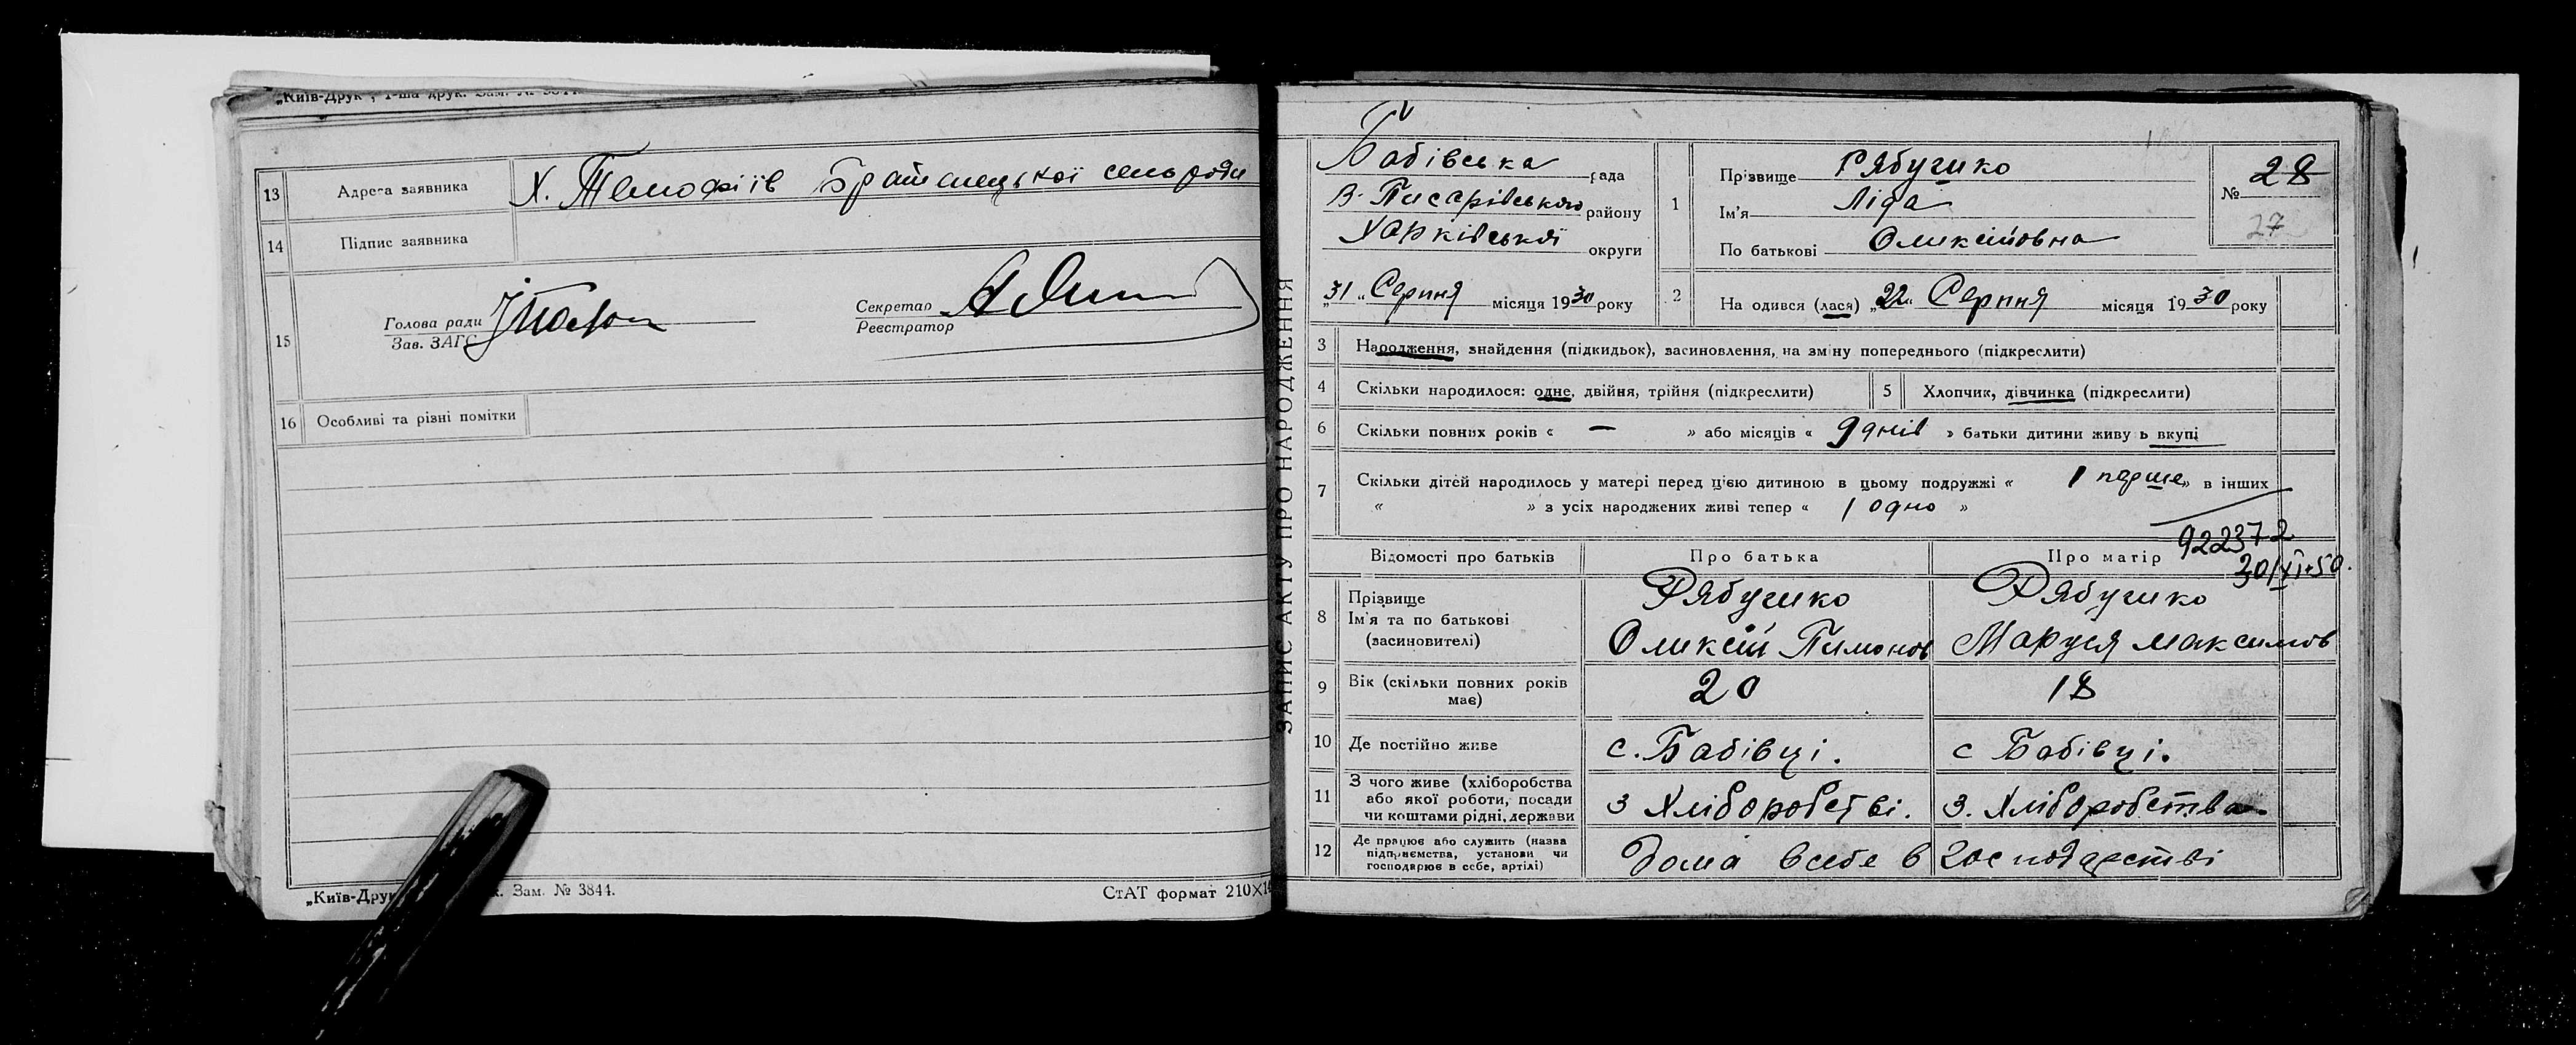 „Київ-Друк", 1-ша друк. Зам. № 3844.
13 Адреса заявника Х. Темофіїв Братенецької сельради
14 Підпис заявника
15 Голова ради
Зав. ЗАГС
Секретар
Реєстратор
16 Особливі та різні помітки
„Київ-Друк Зам. № 3844.
СтАТ формат 210×14
ЗАПИС АКТУ ПРО НАРОДЖЕННЯ
Бабівська рада
В-Писарівського району
Харківської округи
„31" Серпня місяця 1930 року
1 Прізвище Рябушко
Ім'я Ліда
По батькові Олексійовна
№ 28
27
2 Народився (лася) „22" Серпня місяця 1930 року
3 Народження, знайдення (підкидьок), засиновлення, на зміну попереднього (підкреслити)
4 Скільки народилося: одне, двійня, трійня (підкреслити)
5 Хлопчик, дівчинка (підкреслити)
6 Скільки повних років « — » або місяців « 9 днів » батьки дитини живуть вкупі
7 Скільки дітей народилось у матері перед цією дитиною в цьому подружжі « 1 перше » в інших
« » з усіх народжених живі тепер « 1 одно »
922372
30/XI-50.
Відомості про батьків Про батька Про матір
8 Прізвище Ім'я та по батькові (засиновителі)
Рябушко Рябушко
Олексій Пимонов Маруся Максимов
9 Вік (скільки повних років має) 20 18
10 Де постійно живе с. Бабівці. с Бабівці.
11 З чого живе (хліборобства або якої роботи, посади чи коштами рідні, держави
З Хліборобстві. З. Хліборобства
12 Де працює або служить (назва підприємства, установи чи господарює в себе, артілі)
Дома всебе в господарстві